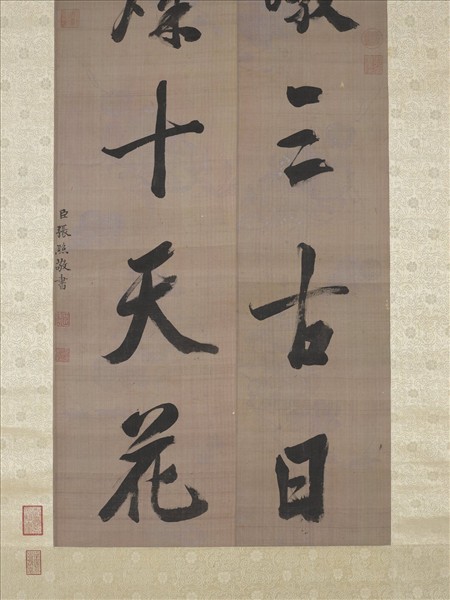 三古日
十天花
臣張照敬書